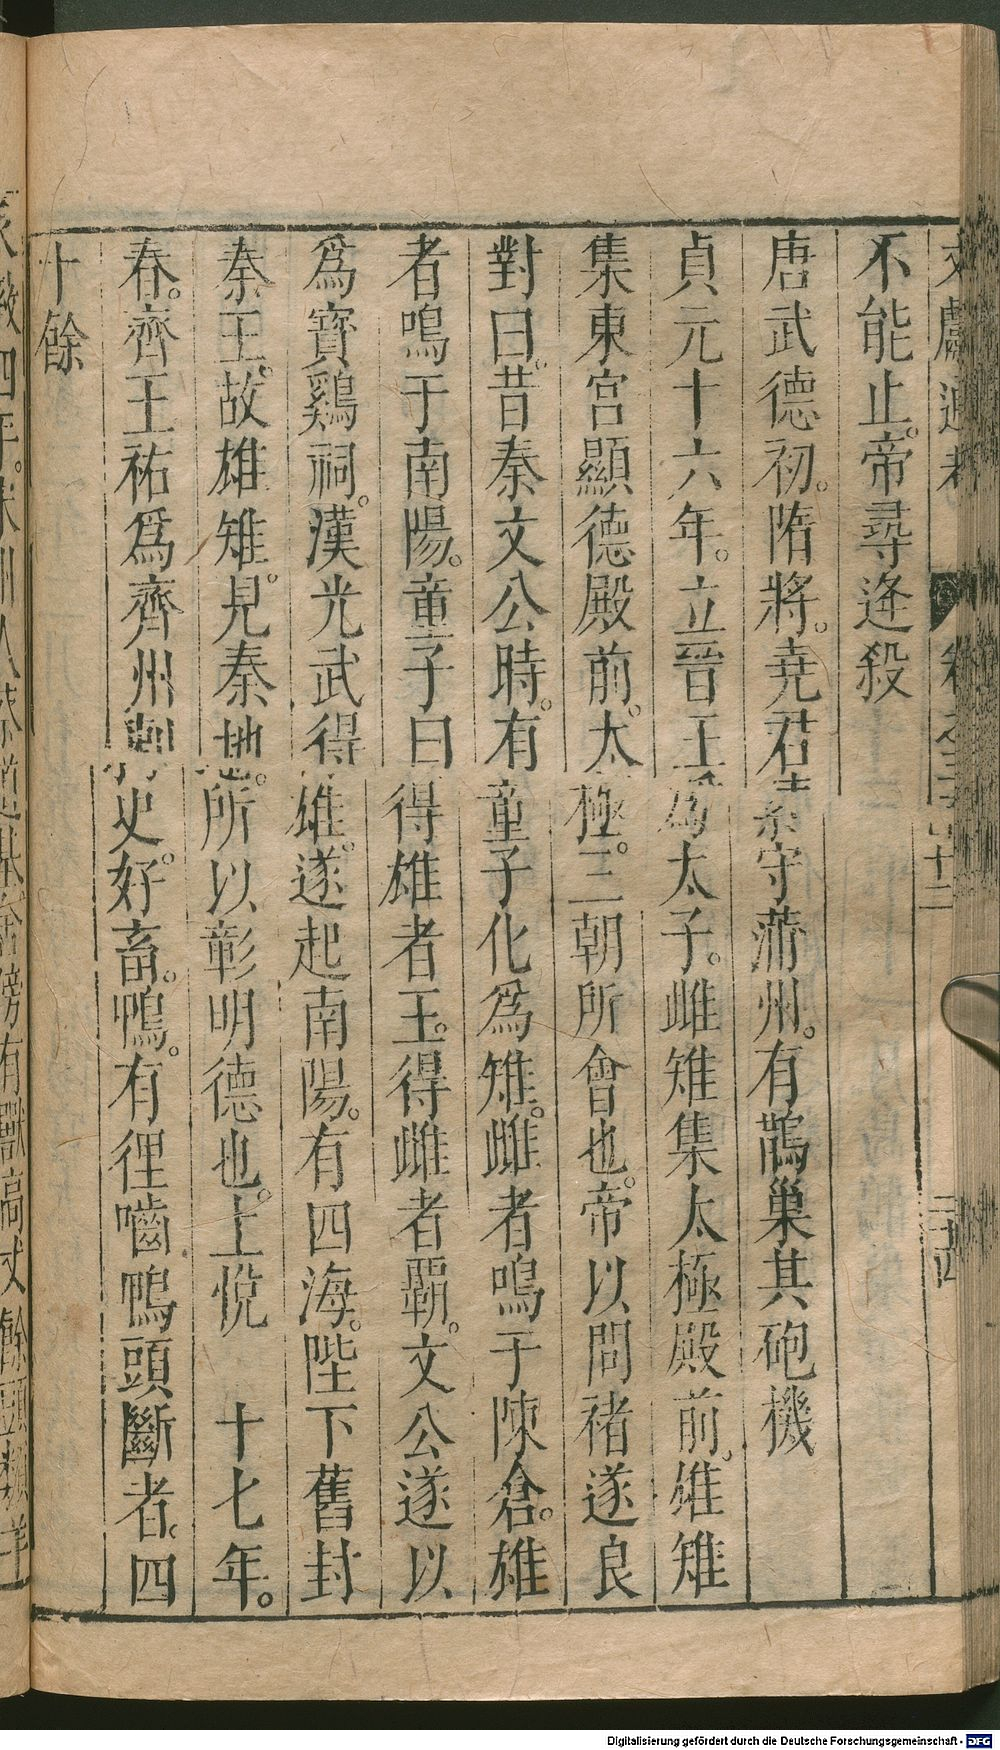 不能止。帝尋逄殺
唐武德初。隋將。堯君素守蒲州。有鵲巢其砲機
貞元十六年。立晉王爲太子。雌雉集太極殿前。雄雉
集東宮顯德殿前。太極。三朝所會也。帝以問褚遂良
對曰。昔秦文公時。有童子化爲雉。雌者鳴于陳倉。雄
者鳴于南陽。童子曰得雄者王。得雌者覇。文公遂以
爲寳鷄祠。漢光武得雄。遂起南陽。有四海。陛下舊封
秦王。故雄雉見秦地。所以彰明德也。上悅 十七年。
春。齊王祐爲齊州刺史。好畜。鴨。有狸嚙鴨頭斷者。四
十餘
Digitalisierung gefördert durch die Deutsche Forschungsgemeinschaft - DFG